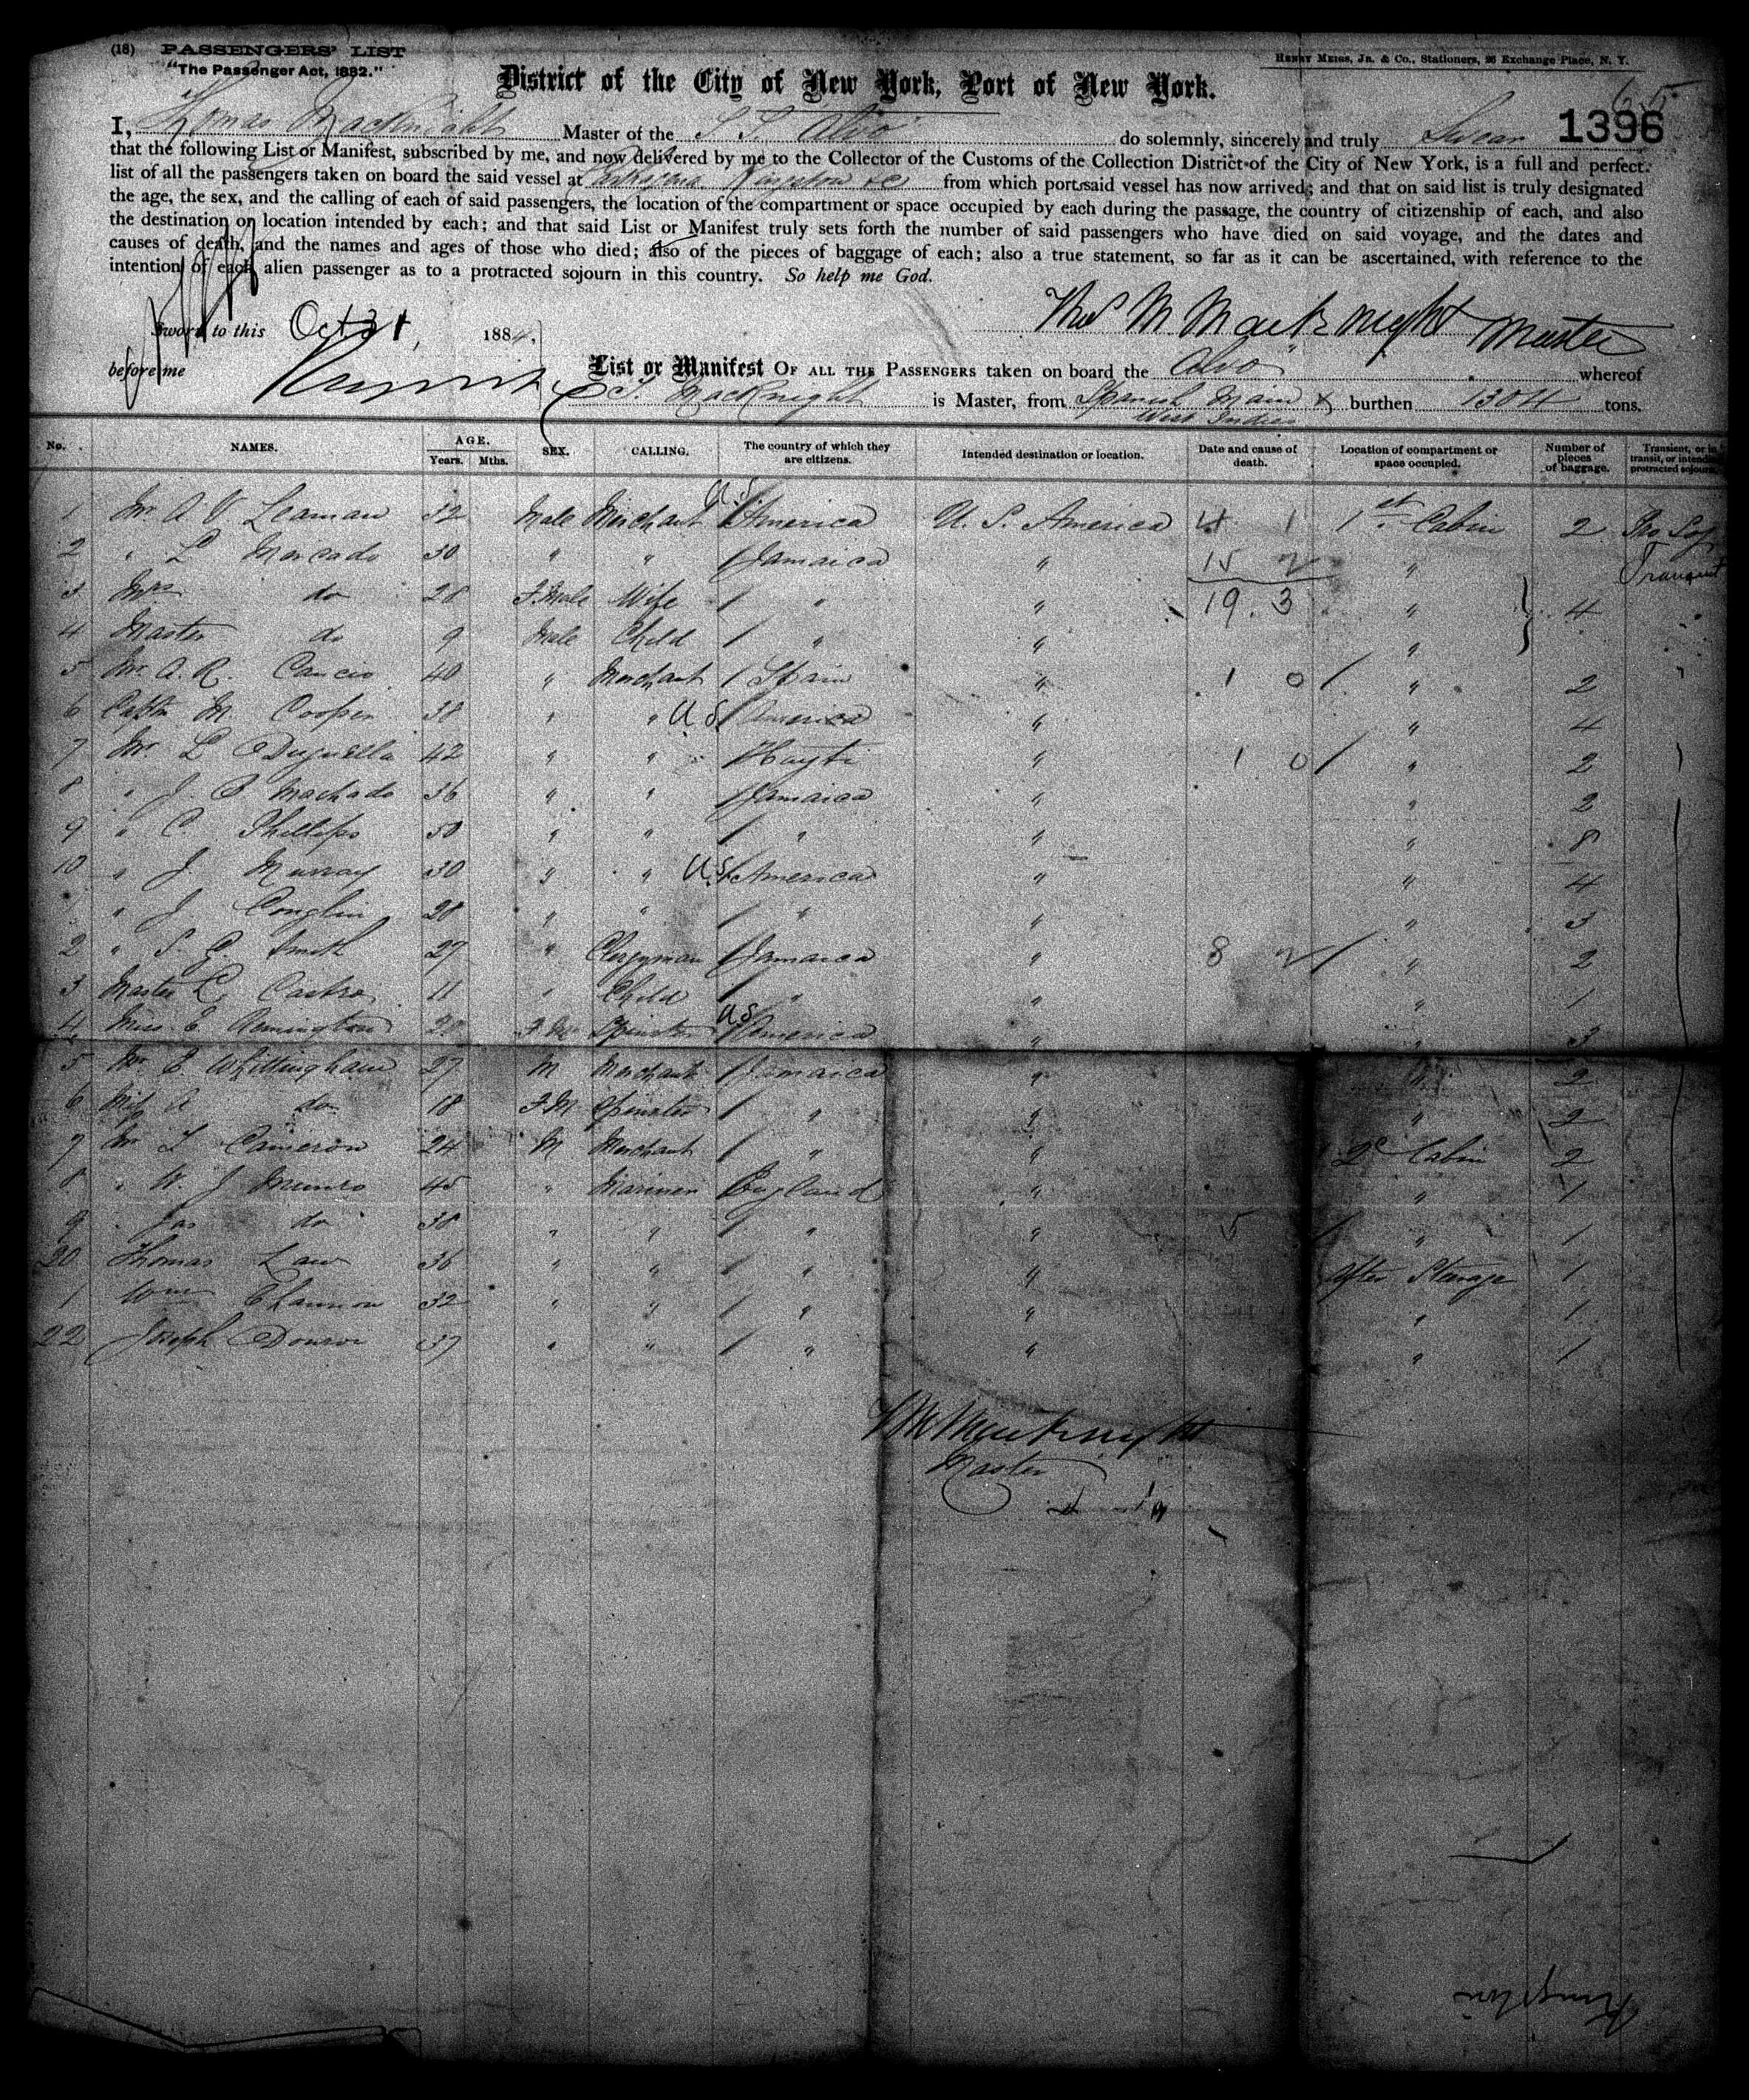 (18) PASSENGERS' LIST
"The Passenger Act, 1882."
HENRY MEIGS, JR. & CO., Stationers, 26 Exchange Place, N. Y.
District of the City of New York, Port of New York.
1396
I, Thomas MacKnight Master of the S.S. Alvo do solemnly, sincerely and truly Swear
that the following List or Manifest, subscribed by me, and now delivered by me to the Collector of the Customs of the Collection District of the City of New York, is a full and perfect
list of all the passengers taken on board the said vessel at Kingston &c from which port said vessel has now arrived; and that on said list is truly designated
the age, the sex, and the calling of each of said passengers, the location of the compartment or space occupied by each during the passage, the country of citizenship of each, and also
the destination or location intended by each; and that said List or Manifest truly sets forth the number of said passengers who have died on said voyage, and the dates and
causes of death, and the names and ages of those who died; also of the pieces of baggage of each; also a true statement, so far as it can be ascertained, with reference to the
intention of each alien passenger as to a protracted sojourn in this country. So help me God.
Thos M. MacKnight Master
Sworn to this Oct 31, 1884,
before me
List or Manifest OF ALL THE PASSENGERS taken on board the "Alvo" whereof
T. MacKnight is Master, from Spanish Main & West Indies burthen 1304 tons.
No. NAMES. AGE. Years. Mths. SEX. CALLING. The country of which they are citizens. Intended destination or location. Date and cause of death. Location of compartment or space occupied. Number of pieces of baggage. Transient, or in transit, or intending protracted sojourn.
1 Mr A V Leaman 32 Male Merchant U.S. America U. S. America 4 1 1st Cabin 2
2 " L Mercado 30 " " Jamaica " 15 2 " Transient
3 Mrs do 28 F.Male Wife " " 19. 3 " 4
4 Master do 9 Male Child " " "
5 Mr A. R. Cancio 40 " Merchant Spain " 1 0 " 2
6 Captn M Cooper 38 " " U S America " " 4
7 Mr L Duquella 42 " " Hayti " 1 0 " 2
8 " J. S Machado 36 " " Jamaica " " 2
9 " C. Phillips 50 " " " " " 8
10 " J Murray 30 " " U.S. America " " 4
" J Conglin 28 " " " " " 3
2 " S. G. Smith 27 " Clergyman Jamaica " 8 2 " 2
3 Master L Castro 11 " Child " " " 1
4 Miss E Remington F.M. Spinster U S America " " 3
5 Mr E Whittingham 27 M Merchant Jamaica " " 2
6 Miss A do 18 F.M Spinster " " " 2
7 Mr T Cameron 24 M Merchant " " 2d Cabin 2
8 " W. J Munro 45 " Mariner England " " 1
9 " Jas do 38 " " " " 5 " 1
20 Thomas Law 36 " " " " After Steerage 1
1 Wm Channon 32 " " " " " 1
22 Joseph 37 " " " " " 1
T M MacKnight
Master